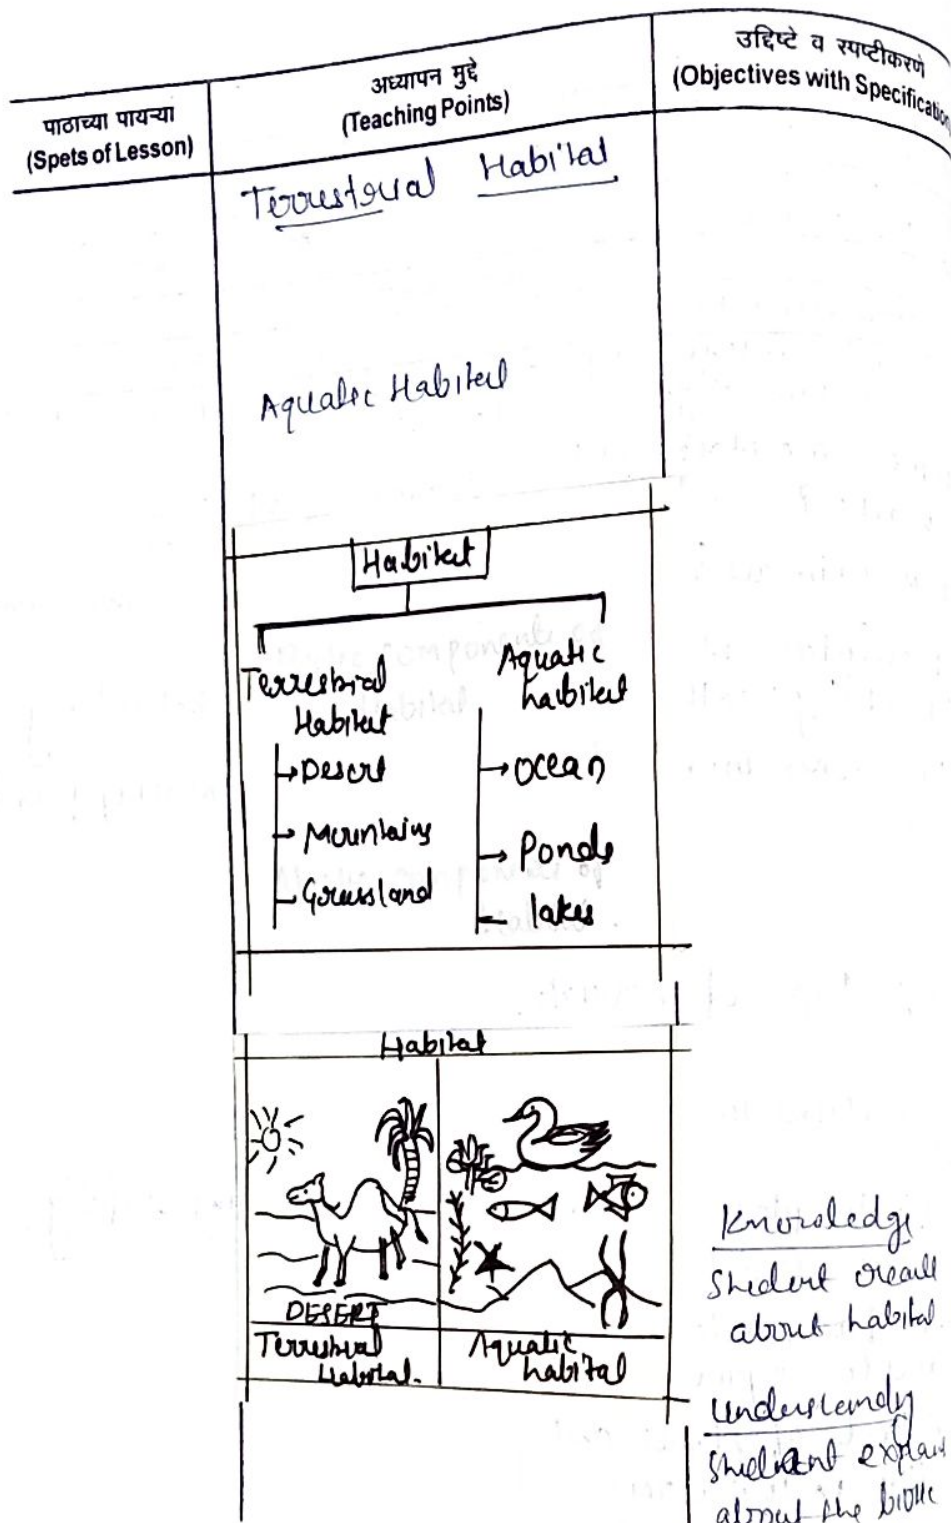 पाठाच्या पायऱ्या
(Spets of Lesson)
अध्यापन मुद्दे
(Teaching Points)
उद्दिष्टे व स्पष्टीकरणे
(Objectives with Specification
Terrestrial Habitat
Aquatic Habitat
Habitat
Terrestrial
Habitat
Desert
Mountains
Grassland
Aquatic
habitat
Ocean
Ponds
lakes
Habitat
DESERT
Terrestrial
Habitat.
Aquatic
habitat
Knowledge
Student recall
about habitat
Understanding
Student explain
about the biotic